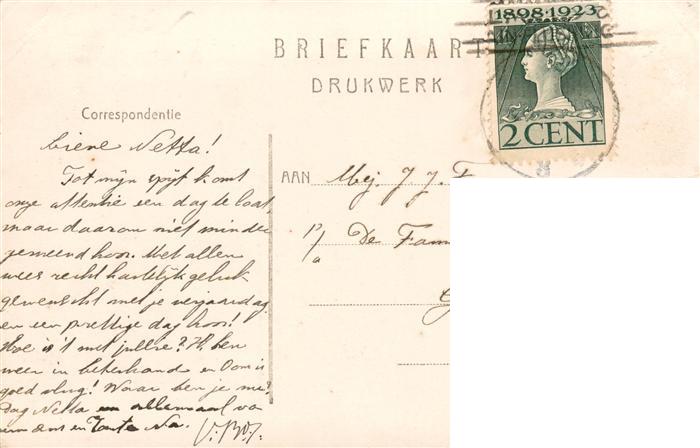 1898-1923
BRIEFKAART
DRUKWERK
2 CENT
Correspondentie
Lieve Netta!
Tot mijn spijt komt
onze attentie een dag te laat,
maar daarom niet minder
gemeend hoor. Met allen
wees recht hartelijk geluk
gewenscht met je verjaardag
en een prettige dag hoor!
Hoe is 't met jullie? Ik ben
weer in beterhand en Oom is
goed vlug! Waar ben je nu?
Dag Netta en allemaal van
en Tante Na.
AAN Mej. J. J. F
p/a De Fam